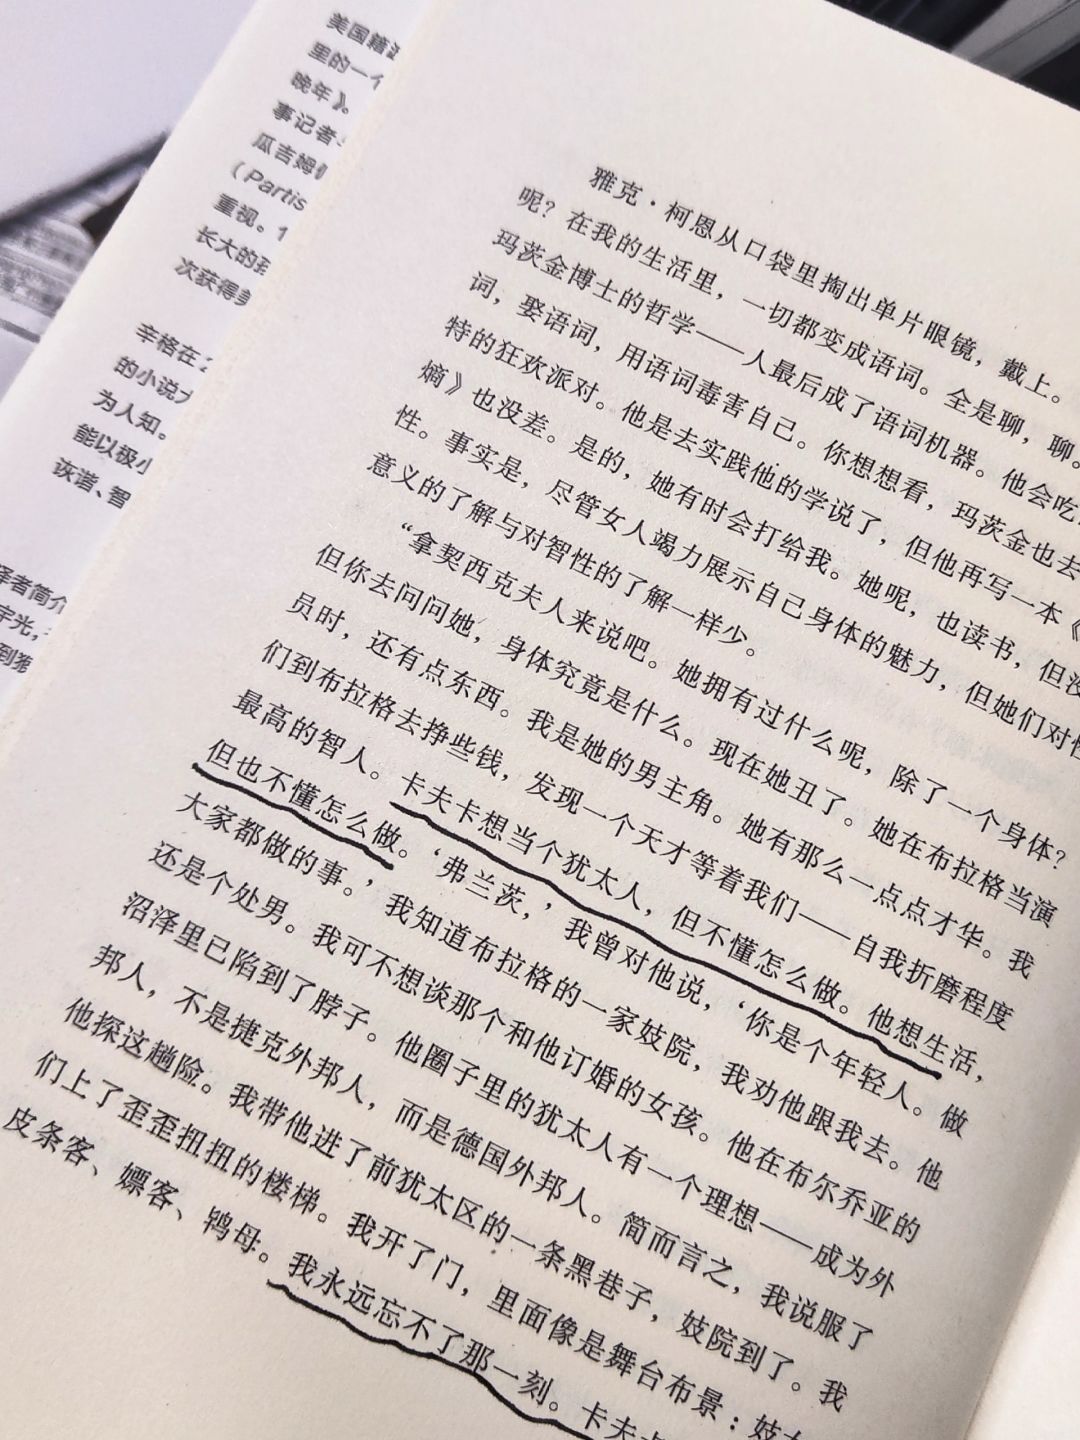 美国籍
里的一个
晚年》。
事记者
瓜吉姆
（Partis
重视。
长大的
次获得
辛格在
的小说
为人知。
能以极
诙谐、智
译者简介
宇光，
到
雅克·柯恩从口袋里掏出单片眼镜，戴上。
呢？在我的生活里，一切都变成语词。全是聊，聊。
玛茨金博士的哲学——人最后成了语词机器。他会吃
词，娶语词，用语词毒害自己。你想想看，玛茨金也去
特的狂欢派对。他是去实践他的学说了，但他再写一本《
熵》也没差。是的，她有时会打给我。她呢，也读书，但没
性。事实是，尽管女人竭力展示自己身体的魅力，但她们对性
意义的了解与对智性的了解一样少。
“拿契西克夫人来说吧。她拥有过什么呢，除了一个身体？
但你去问问她，身体究竟是什么。现在她丑了。她在布拉格当演
员时，还有点东西。我是她的男主角。她有那么一点点才华。我
们到布拉格去挣些钱，发现一个天才等着我们——自我折磨程度
最高的智人。卡夫卡想当个犹太人，但不懂怎么做。他想生活，
但也不懂怎么做。‘弗兰茨，’我曾对他说，‘你是个年轻人。做
大家都做的事。’我知道布拉格的一家妓院，我劝他跟我去。他
还是个处男。我可不想谈那个和他订婚的女孩。他在布尔乔亚的
沼泽里已陷到了脖子。他圈子里的犹太人有一个理想——成为外
邦人，不是捷克外邦人，而是德国外邦人。简而言之，我说服了
他探这趟险。我带他进了前犹太区的一条黑巷子，妓院到了。我
们上了歪歪扭扭的楼梯。我开了门，里面像是舞台布景：妓
皮条客、嫖客、鸨母。我永远忘不了那一刻。卡夫